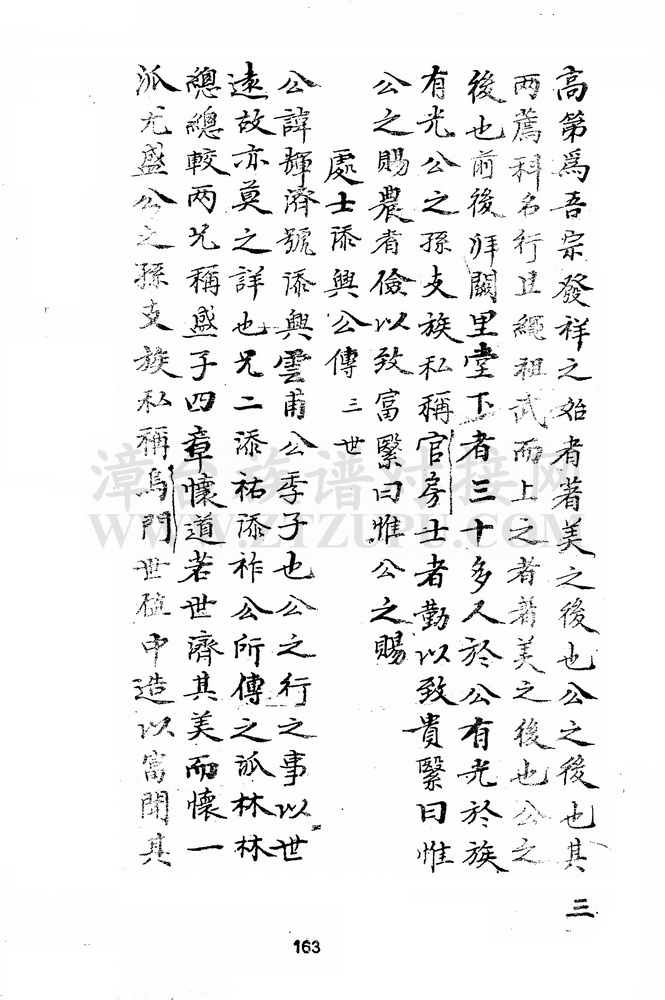 高第爲吾宗發祥之始者著美之後也公之後也其
两薦科名行且繩祖武而上之者著美之後也公之
後也前後拜闕里堂下者三十多人於公有光於族
有光公之孫支族私稱官房士者勤以致貴繄曰惟
公之賜農者儉以致富繄曰惟公之賜
處士添興公傳 三世
公諱輝濟號添興雲甫公季子也公之行之事以世
遠故亦莫之詳也兄二添祐添祚公所傳之派林林
總總較两兄稱盛子四章懷道若世濟其美而懷一
派尤盛公之孫支族私稱烏門世 中造以富聞其
三
163
漳州族谱对接网
WWW.ZTZUPU.COM